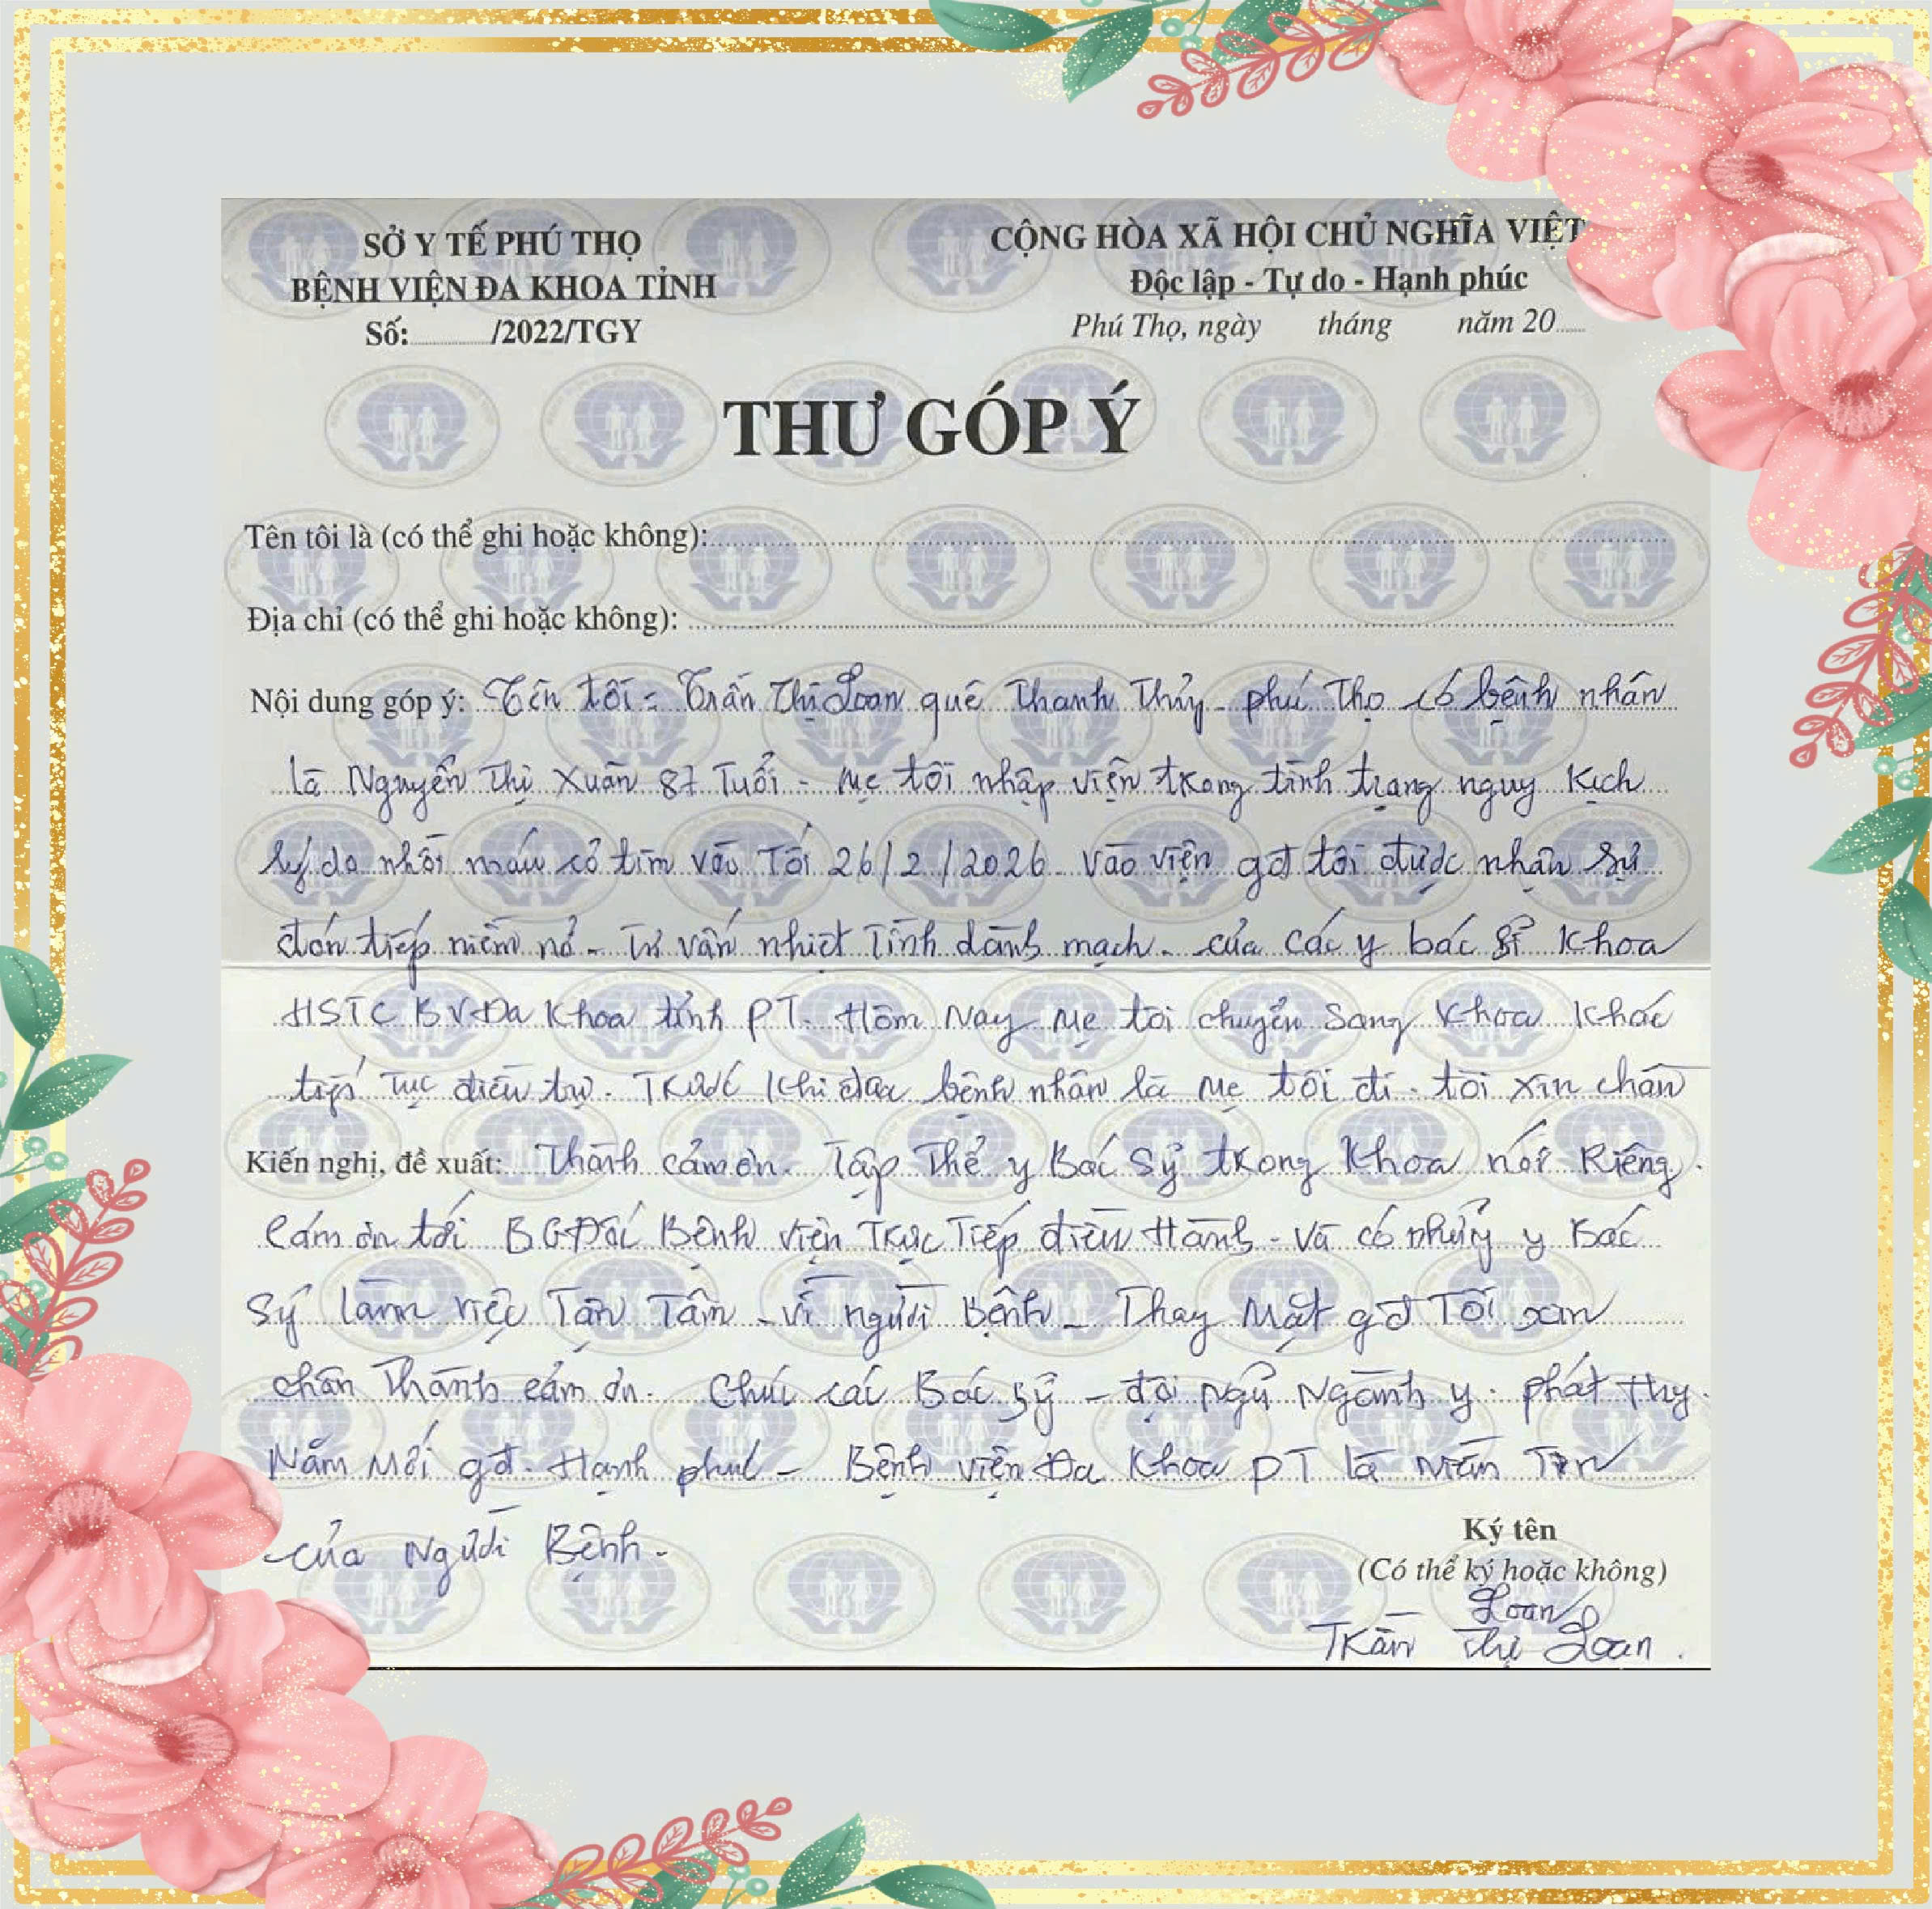 SỞ Y TẾ PHÚ THỌ
BỆNH VIỆN ĐA KHOA TỈNH
Số:............/2022/TGY
CỘNG HÒA XÃ HỘI CHỦ NGHĨA VIỆT
Độc lập - Tự do - Hạnh phúc
Phú Thọ, ngày tháng năm 20......
THƯ GÓP Ý
Tên tôi là (có thể ghi hoặc không):
Địa chỉ (có thể ghi hoặc không):
Nội dung góp ý: Tên tôi: Trần Thị Loan quê Thanh Thủy - phú Thọ có bệnh nhân
là Nguyễn Thị Xuân 87 Tuổi - Mẹ tôi nhập viện trong tình trạng nguy kịch
lý do nhồi máu cơ tim vào Tối 26/2/2026 - vào viện gđ tôi được nhận sự
đón tiếp niềm nở - Tư vấn nhiệt Tình dành mạch - của các y bác sĩ khoa
HSTC BV Đa khoa tỉnh PT. Hôm Nay Mẹ tôi chuyển Sang khoa khác
tiếp Tục điều trị. Trước khi đưa bệnh nhân là Mẹ tôi đi - tôi xin chân
Kiến nghị, đề xuất: Thành cảm ơn. Tập Thể y Bác Sỹ trong khoa nói Riêng.
Cám ơn tới BGĐốc Bệnh viện Trực Tiếp điều Hành - và có những y Bác
Sỹ làm việc Tận Tâm - vì người Bệnh - Thay Mặt gđ Tôi xin
chân Thành cảm ơn. Chúc các Bác sỹ - đội ngũ Ngành y. phát huy.
Năm Mới gđ - Hạnh phúc - Bệnh viện Đa khoa PT là niềm Tin
của Người Bệnh.
Ký tên
(Có thể ký hoặc không)
Loan
Trần Thị Loan.